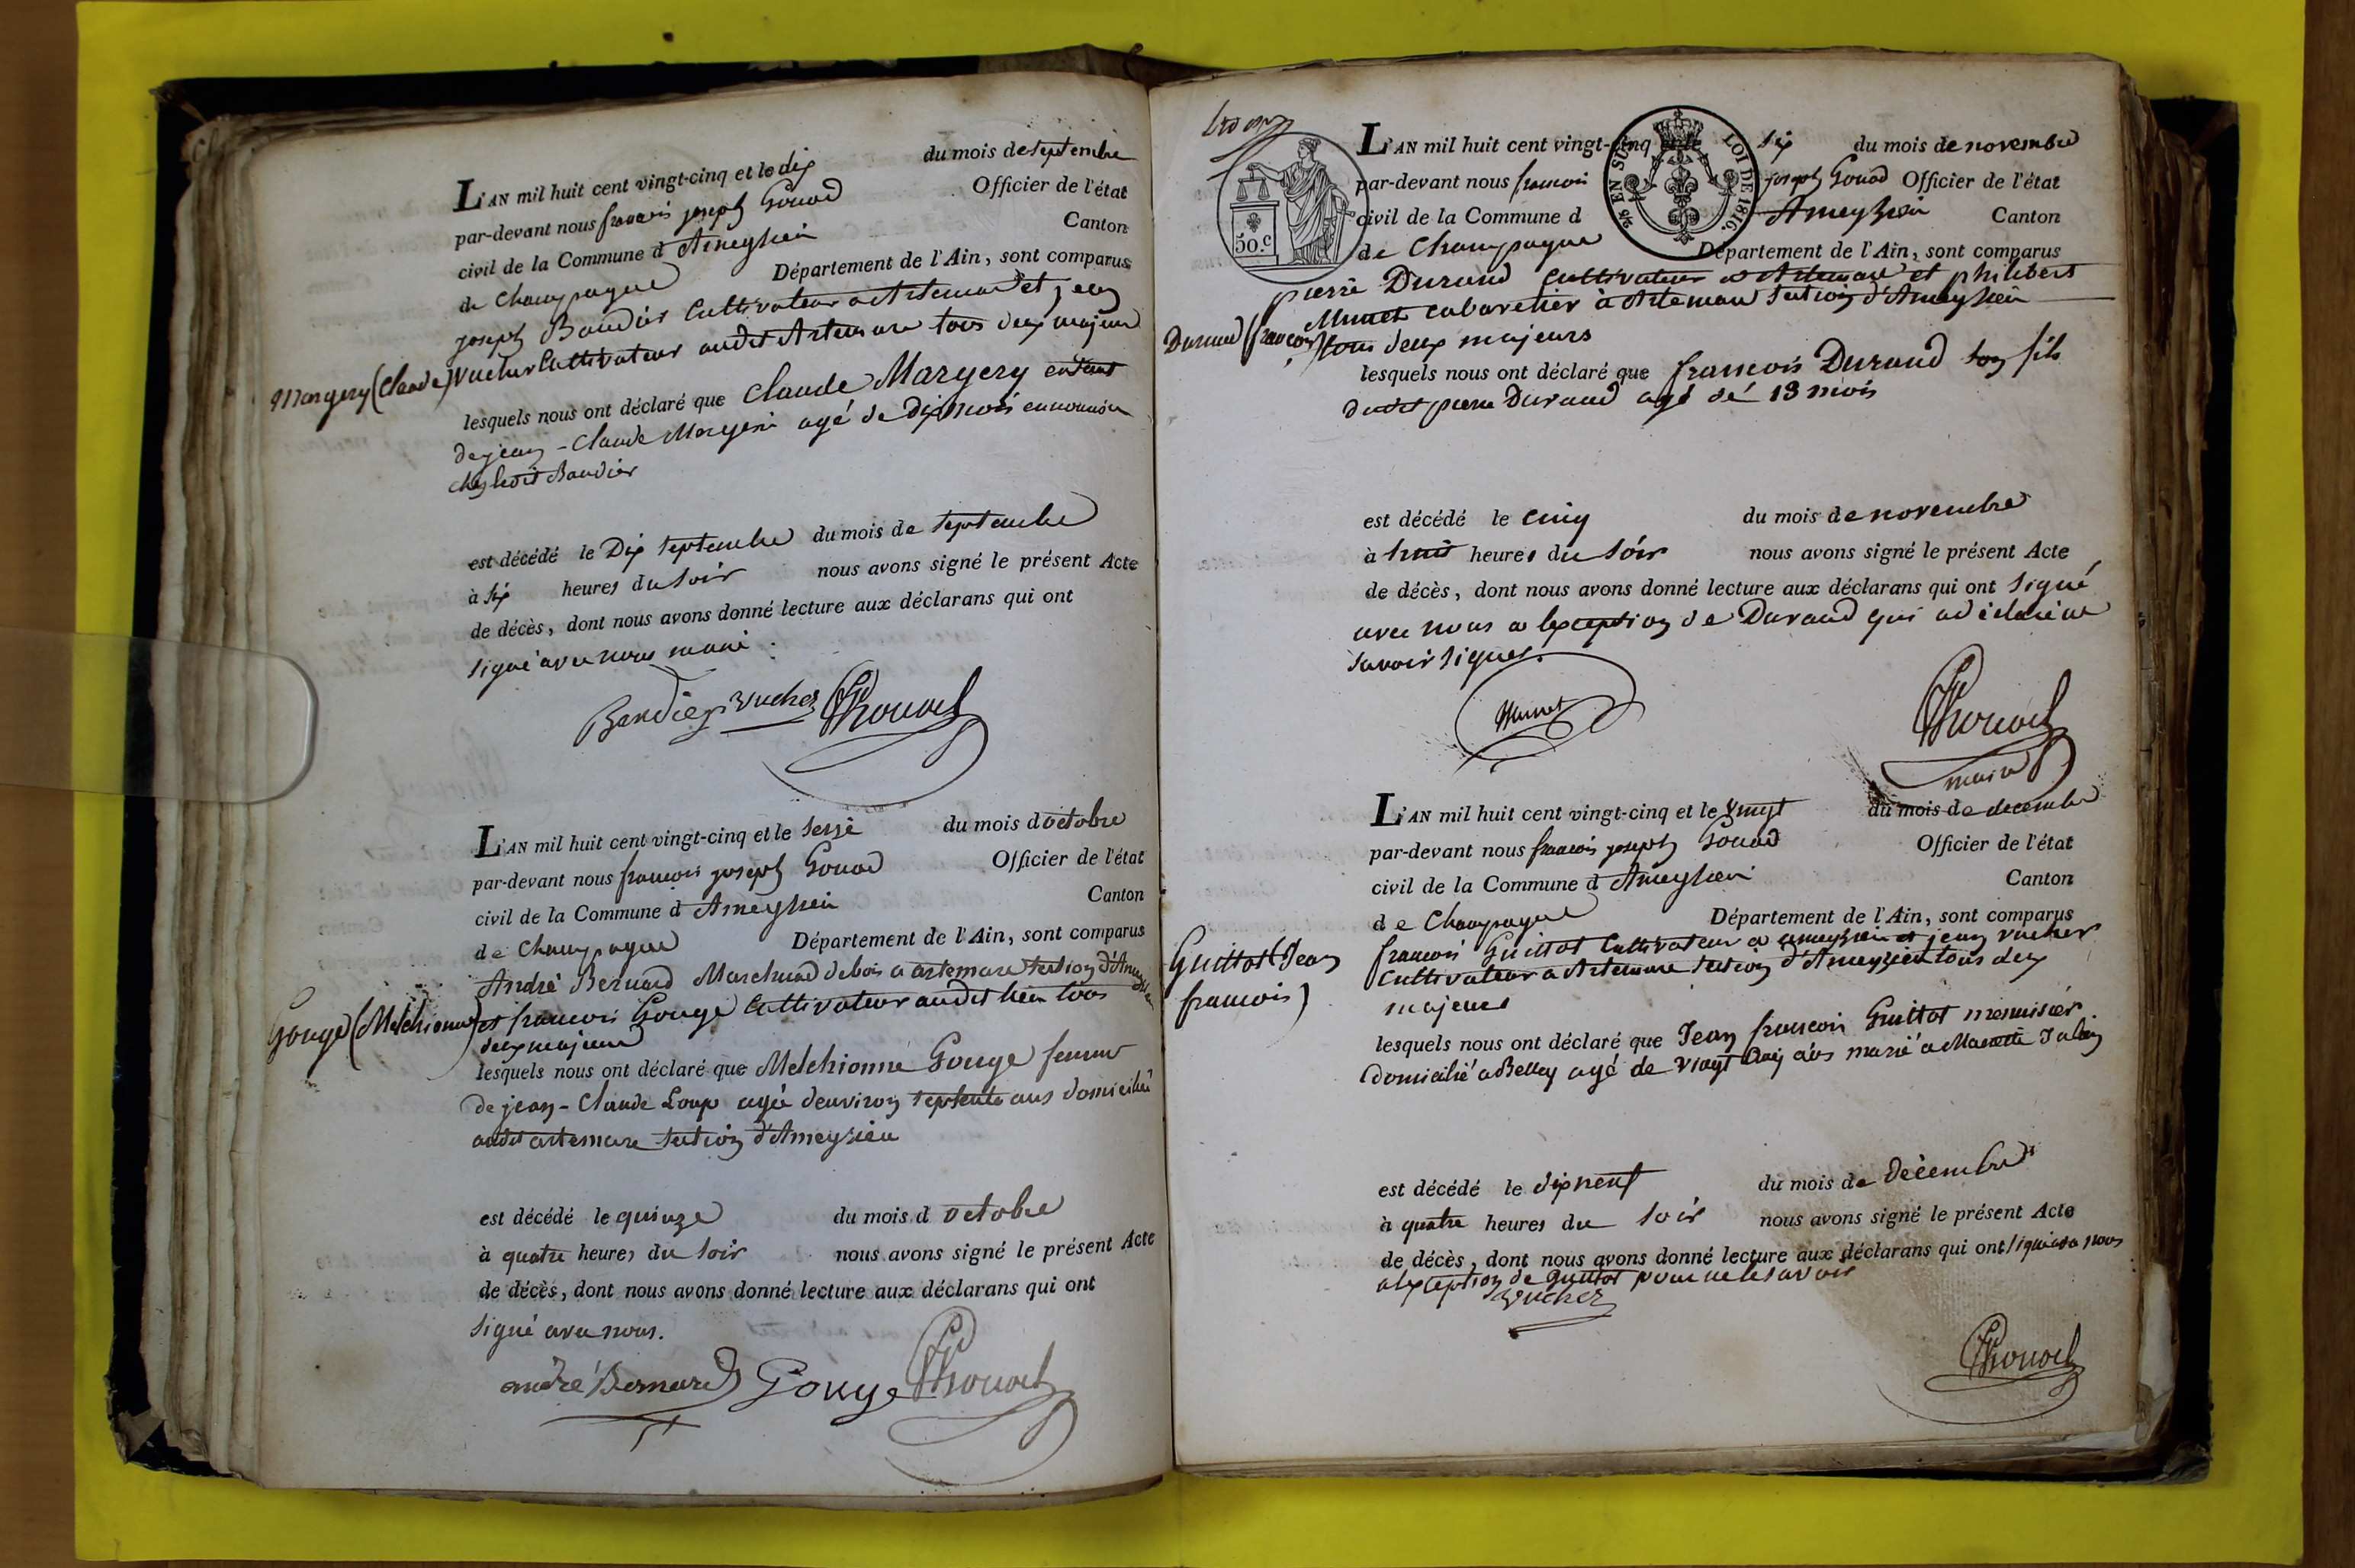 L'AN mil huit cent vingt-cinq et le dix du mois de septembre
par-devant nous francois joseph Gonod Officier de l'état
civil de la Commune d Ameyzieu Canton
de Champagne Département de l'Ain, sont comparus
joseph Baudier Cultivateur a Artemare et jean
Margery (Claude) Vucher Cultivateur audit Artemare tous deux majeurs
lesquels nous ont déclaré que Claude Margery enfant
de jean - Claude Margery agé de Dix mois en nourrice
chez ledit Baudier
est décédé le Dix septembre du mois de septembre
à six heures du soir nous avons signé le présent Acte
de décès, dont nous avons donné lecture aux déclarans qui ont
signé avec nous maire.
Baudier Vucher Gonod
L'AN mil huit cent vingt-cinq et le seize du mois d octobre
par-devant nous francois joseph Gonod Officier de l'état
civil de la Commune d Ameyzieu Canton
de Champagne Département de l'Ain, sont comparus
André Bernard Marchand de bois a artemare section d'Ameyzieu
Gouge (Melchionne) et francois Gouge Cultivateur audit lieu tous
deux majeurs
lesquels nous ont déclaré que Melchionne Gouge femme
de jean - Claude Loup agée d'environ septente ans domiciliée
audit artemare section d'Ameyzieu
est décédé le quinze du mois d octobre
à quatre heures du soir nous avons signé le présent Acte
de décès, dont nous avons donné lecture aux déclarans qui ont
signé avec nous.
andré Bernard Gouge Gonod
50.c
EN SUS LOI DE 1816.
L'AN mil huit cent vingt-cinq et le six du mois de novembre
par-devant nous francois joseph Gonod Officier de l'état
civil de la Commune d Ameyzieu Canton
de Champagne Département de l'Ain, sont comparus
pierre Durand Cultivateur a Artemare et philibert
Munet cabaretier à Artemare section d'Ameyzieu
Durand (francois) tous deux majeurs
lesquels nous ont déclaré que francois Durand son fils
dudit pierre Durand agé dé 13 mois
est décédé le cinq du mois de novembre
à huit heures du soir nous avons signé le présent Acte
de décès, dont nous avons donné lecture aux déclarans qui ont signé
avec nous a lexception de Durand qui a déclaré ne
savoir signer.
Munet Gonod
maire
L'AN mil huit cent vingt-cinq et le vingt du mois de decembre
par-devant nous francois joseph Gonod Officier de l'état
civil de la Commune d Ameyzieu Canton
de Champagne Département de l'Ain, sont comparus
Guittot (Jean francois Guittot Cultivateur a ameyzieu et jean vucher
Cultivateur a Artemare section d'Ameyzieu tous deux
francois) majeurs
lesquels nous ont déclaré que Jean francois Guittot menuisier
domicilié a Belley agé de vingt cinq ans marié a
est décédé le dix neuf du mois de décembre
à quatre heures du soir nous avons signé le présent Acte
de décès, dont nous avons donné lecture aux déclarans qui ont signé avec nous
a lexception de guittot pour ne le savoir
Vucher
Gonod